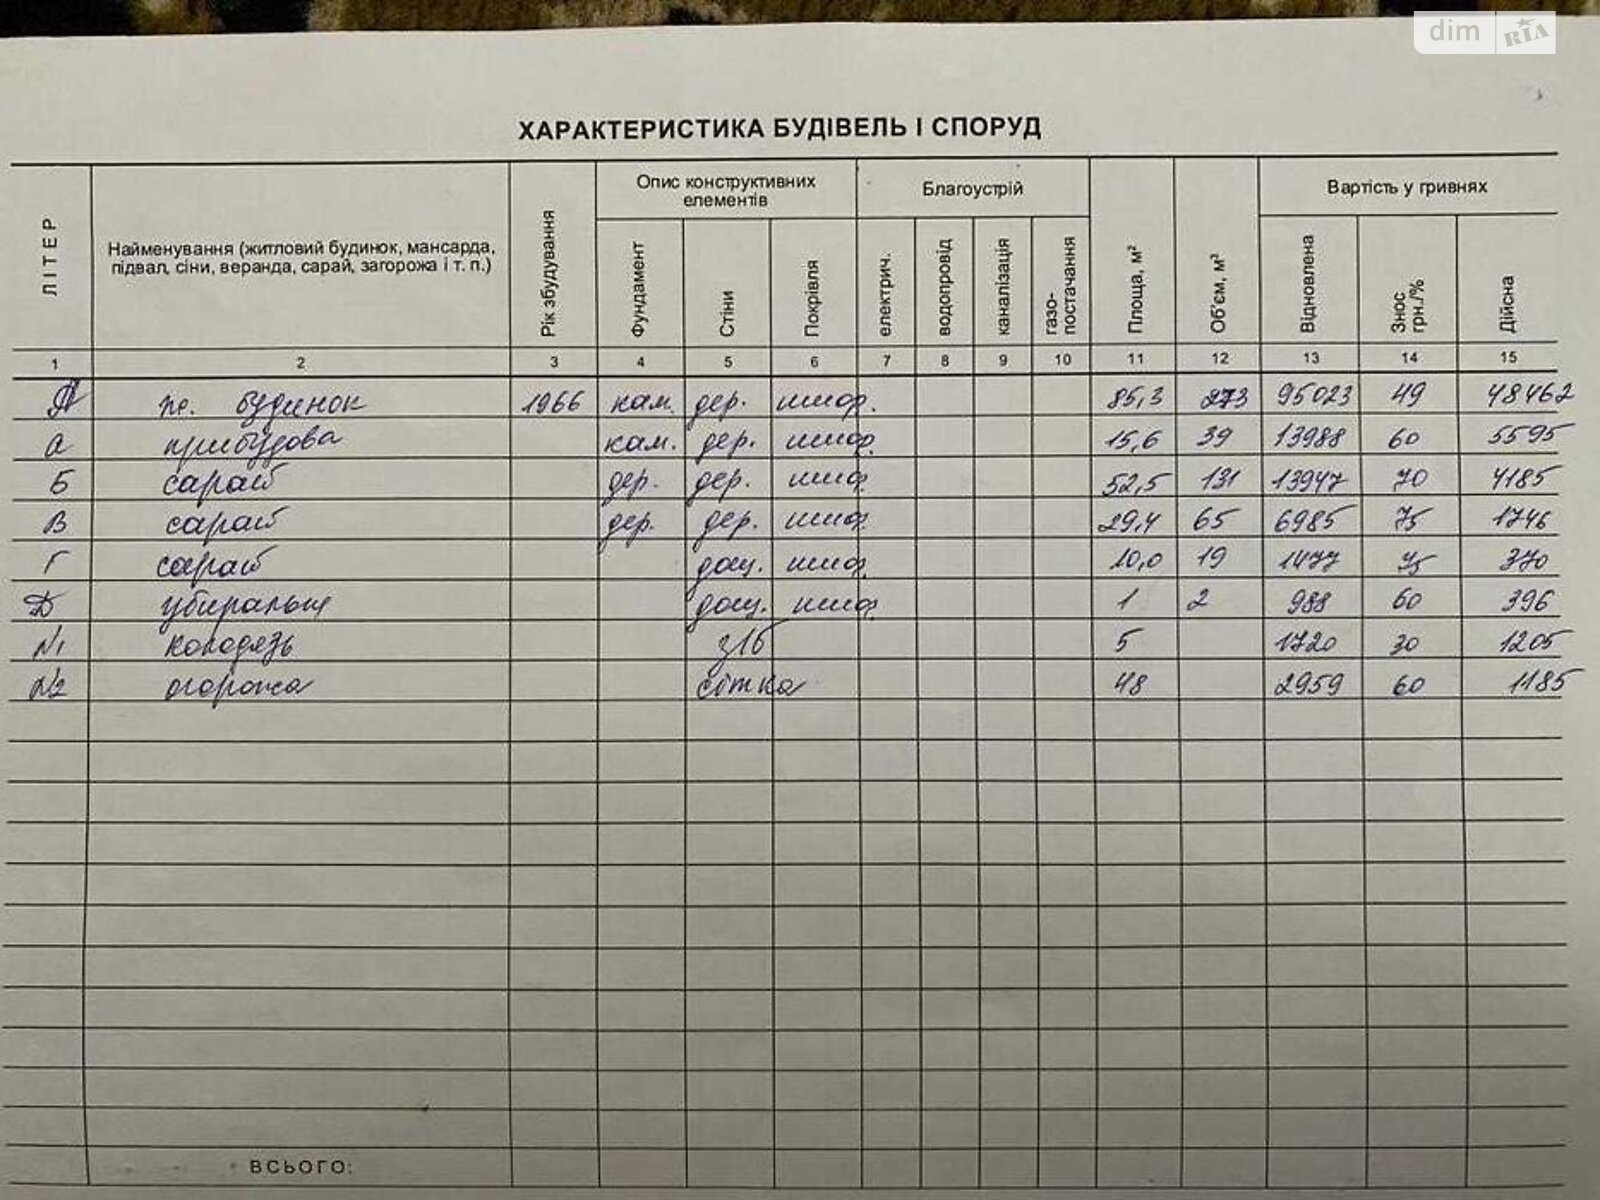 dim RIA
ХАРАКТЕРИСТИКА БУДІВЕЛЬ І СПОРУД
ЛІТЕР
Найменування (житловий будинок, мансарда, підвал, сіни, веранда, сарай, загорожа і т. п.)
Рік збудування
Опис конструктивних елементів
Фундамент
Стіни
Покрівля
Благоустрій
електрич.
водопровід
каналізація
газо-постачання
Площа, м²
Об'єм, м³
Вартість у гривнях
Відновлена
Знос грн./%
Дійсна
1 2 3 4 5 6 7 8 9 10 11 12 13 14 15
А будинок 1966 кам. дер. шиф. 85,3 273 95023 49 48462
а прибудова кам. дер. шиф. 15,6 39 13988 60 5595
Б сарай дер. дер. шиф. 52,5 131 13947 70 4185
В сарай дер. дер. шиф. 29,4 65 6985 75 1746
Г сарай дощ. шиф. 10,0 19 1477 75 370
Д убиральня дощ. шиф. 1 2 988 60 396
№1 колодязь з/б 5 1720 30 1205
№2 огорожа сітка 48 2959 60 1185
ВСЬОГО: